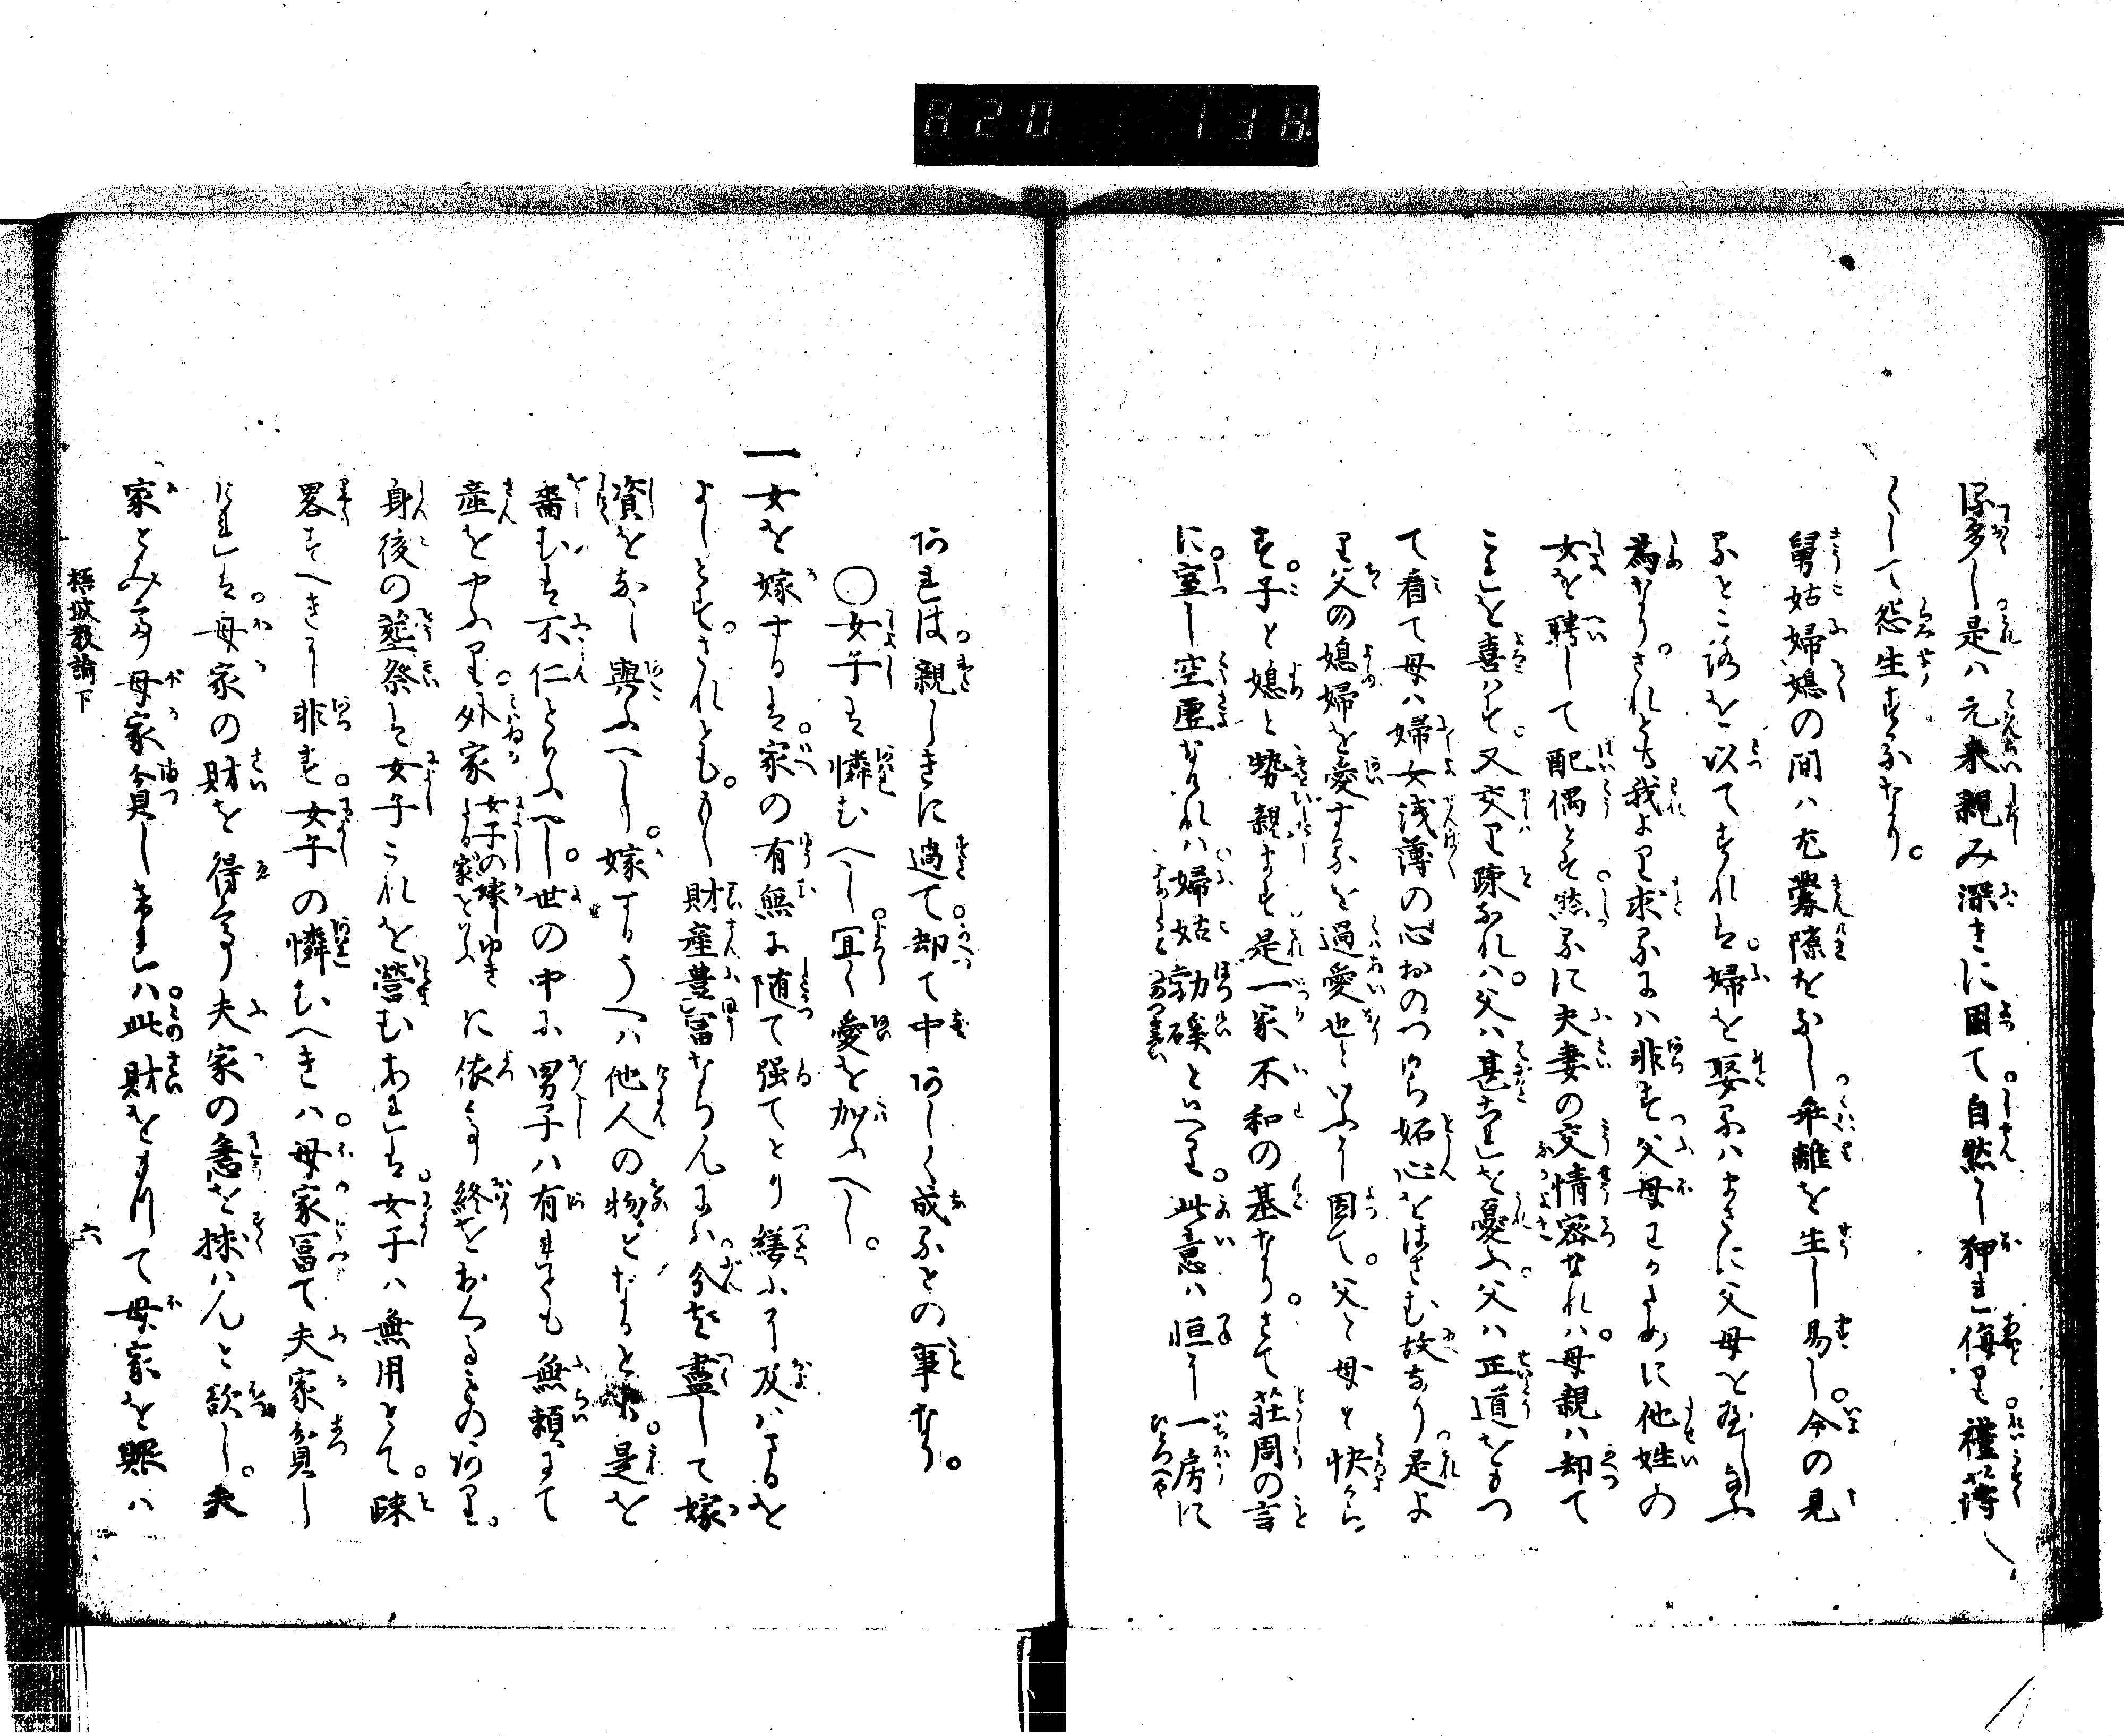 820 138.
深多し是ハ元来親み深きに因て自然に狎れ侮り礼薄
くして怨生するなり。
舅姑婦媳の間ハ尤釁隙をなし乖離を生し易し。今の見
るところを以てすれは。婦を娶るハまさに父母を
為なり。されとも我より求るにハ非す父母わかために他姓の
女を聘して配偶とす然るに夫妻の交情密なれハ。母親ハ却て
これを喜ハす。又交り疎なれハ。父ハ甚これを憂ふ。父ハ正道をもつ
て看て母ハ婦女浅薄の心おのつから妬心をはさむ故なり是よ
り父の媳婦を愛するを過愛也といふに因て。父と母と快から
す。子と媳と勢親ます是一家不和の基なり。さて荘周の言
に。室に空虚なけれハ婦姑勃磎といへり。此意ハ恒に一房に
あれは親しきに過て。却て中あしく成るとの事なり。
〇女子は憐むへし。宜く愛を加ふへし。
一女を嫁するは。家の有無に随て強てとり繕ふに及ハさるを
よしとす。されとも。もし財産豊富ならんにハ。分を盡して嫁
資をなし與ふへし。嫁するうへハ他人の物となるとて。是を
嗇むは不仁といふへし。世の中に男子ハ有れとも無頼にて
産をやふり。外家女子の嫁しゆきたる家をいふに依て終をおくるもの阿り。
身後の葬祭は女子これを営むあれは。女子ハ無用とて。疎
畧すへきに非す。女子の憐むへきハ。母家冨て夫家貧し
けれは。母家の財を得て夫家の急を捄ハんと欲し。夫
家とみて母家貧しけれハ。此財をもつて母家を賑ハ
梧坡教諭 下
六